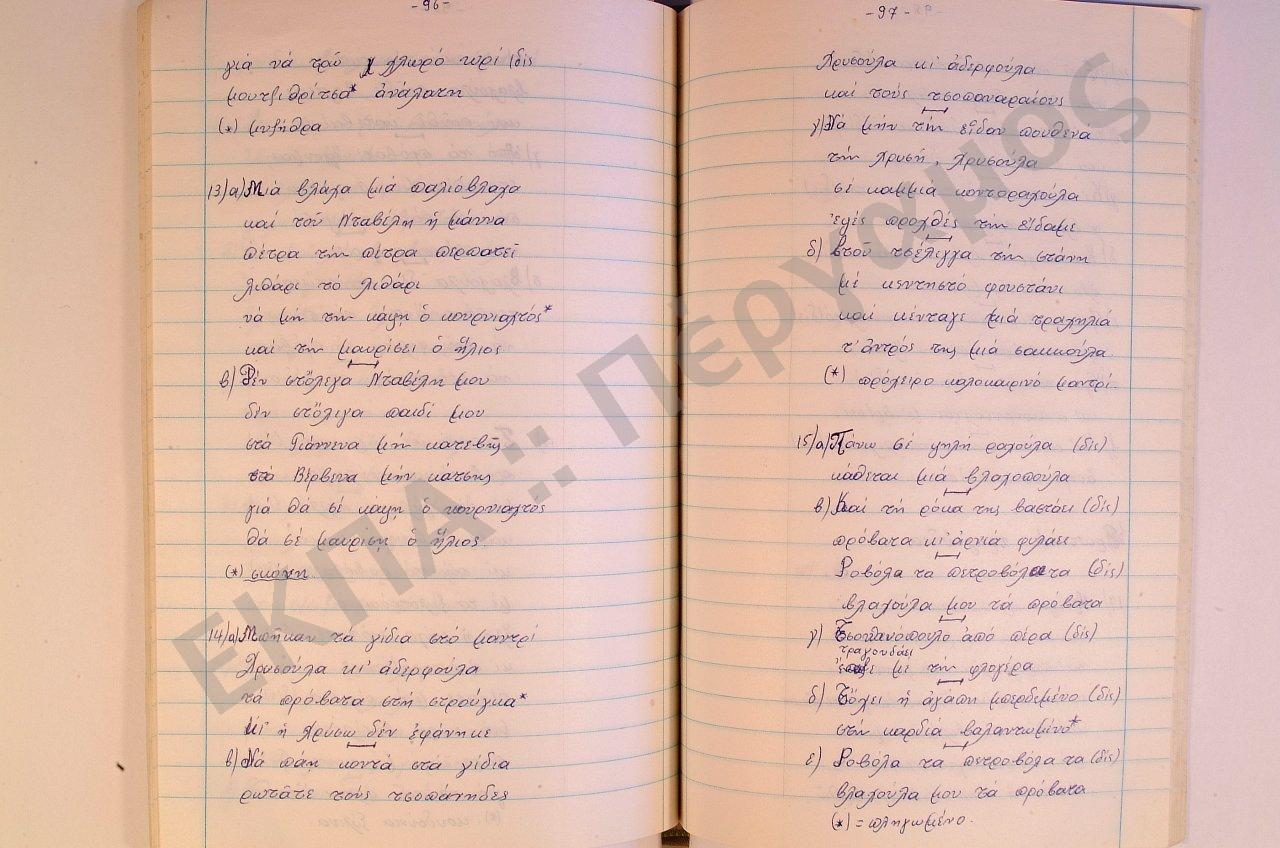 -96-
γιά νά τρῶ χλωρό τυρί (δίς
μουτζιθρίτσα* ἀνάλατη
(*) μυζήθρα
13) α) Μιά βλάχα μιά παλιόβλαχα
καί τοῦ Νταβέλη ἡ μάννα
πέτρα τήν πέτρα περπατεῖ
λιθάρι τό λιθάρι
νά μή τήν κάψῃ ὁ κουρνιαχτός*
καί τήν μαυρίσει ὁ ἥλιος
β) Δέν στὄλεγα Νταβέλη μου
δέν στὄλεγα παιδί μου
στά Γιάννενα μήν κατεβῇς
στά Βέρβενα μήν κάτσῃς
γιά θά σέ κάψῃ ὁ κουρνιαχτός
θά σέ μαυρίσῃ ὁ ἥλιος.
(*) σκόνη.
14) α) Μπῆκαν τά γίδια στό μαντρί
Χρυσούλα κι' ἀδερφούλα
τά πρόβατα στή στρούγκα*
κι' ἡ Χρύσω δέν ἐφάνηκε
β) Νά πάῃ κοντά στά γίδια
ρωτᾶτε τούς τσοπάνηδες
-97-
Χρυσούλα κι' ἀδερφούλα
καί τούς τσοπαναραίους
γ) Νά μήν τήν εἶδαν πουθενά
τήν Χρυσή, Χρυσούλα
σέ καμμιά κοντοραχούλα
ἐχές προχθές τήν εἴδαμε
δ) στοῦ τσέλιγγα τήν στάνη
μέ κεντηστό φουστάνι
καί κένταγε μιά τραχηλιά
τ' ἀντρός της μιά σακκούλα.
(*) πρόχειρο καλοκαιρινό μαντρί.
15) α) Πάνω σέ ψηλή ραχούλα (δίς)
κάθεται μιά βλαχοπούλα
β) Καί τή ρόκα της βαστάει (δίς)
πρόβατα κι' ἀρνιά φυλάει
Ροβόλα τα πετροβόλα τα (δίς)
βλαχούλα μου τά πρόβατα
γ) Τσοπανόπουλο ἀπό πέρα (δίς)
τραγουδάει
με τήν φλογέρα
δ) Τὄχει ἡ ἀγάπη μπερδεμένο (δίς)
στήν καρδιά βαλαντωμένο*
ε) Ροβόλα τα πετροβόλα τα (δίς)
βλαχούλα μου τά πρόβατα.
(*) = πληγωμένο.
ΕΚΠΑ :: Πέργαμος